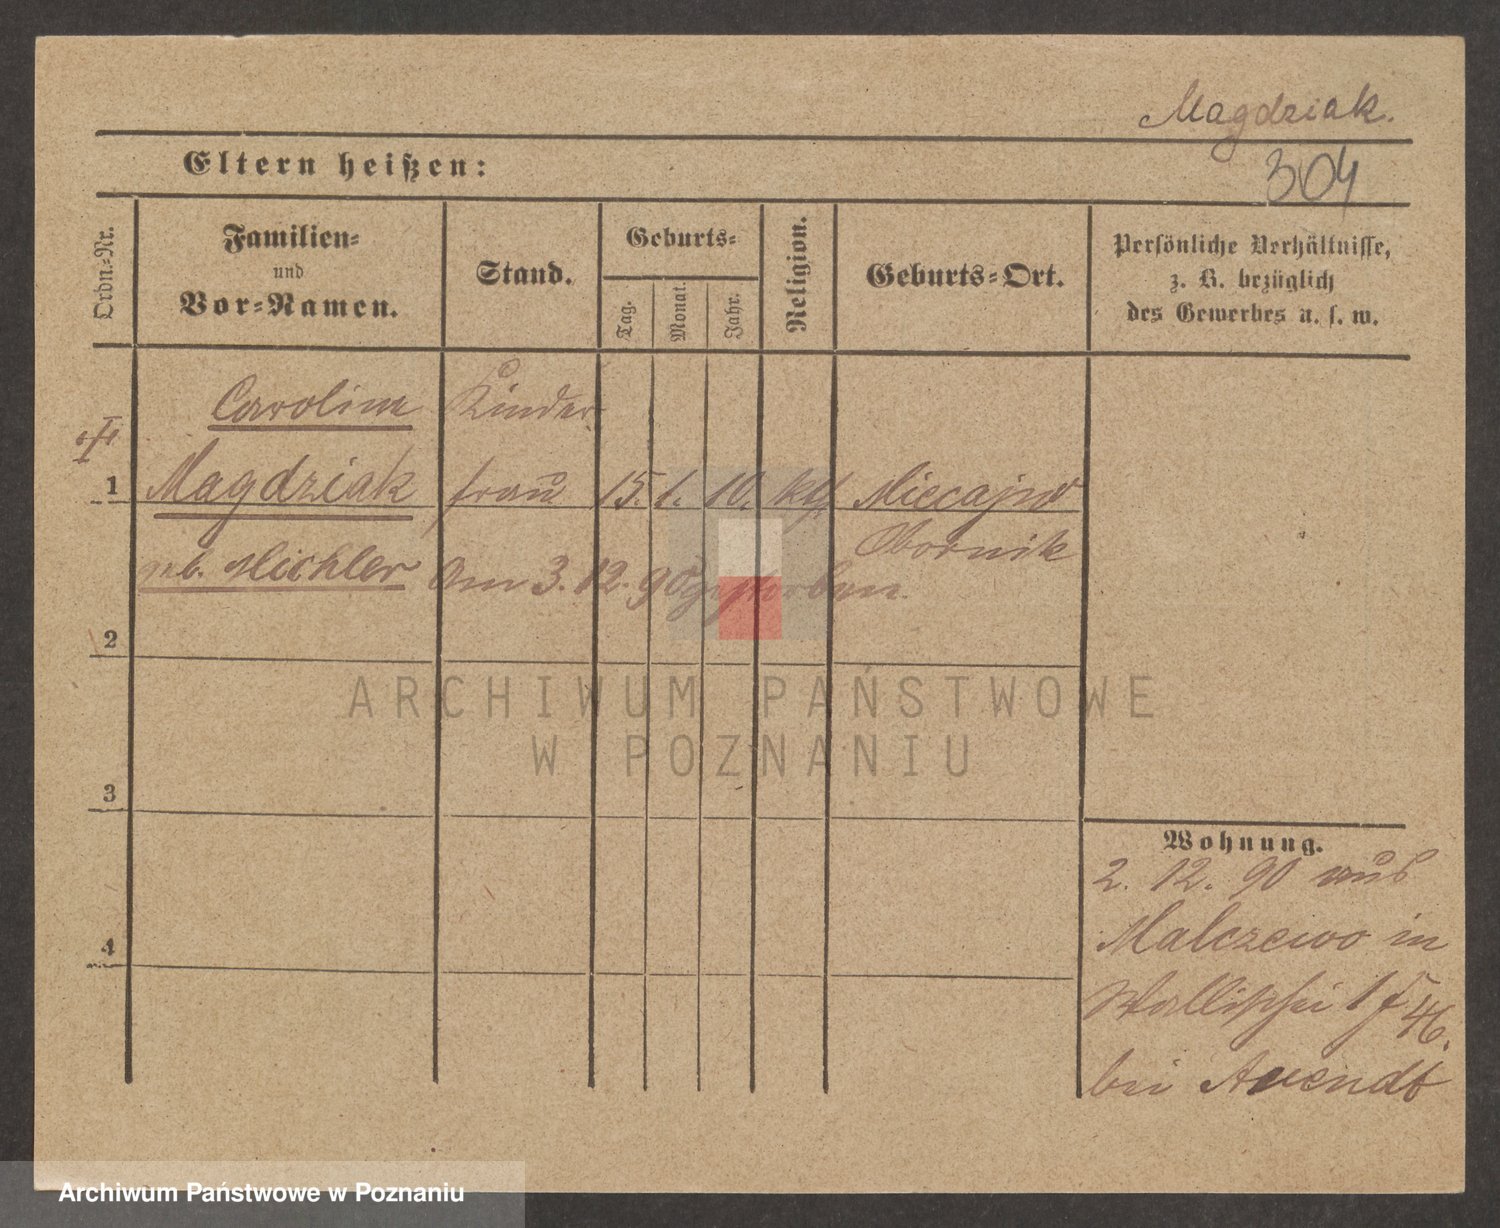 Magdziak.
304
Eltern heißen:
Ordn.-Nr.
Familien-
und
Vor-Namen.
Stand.
Geburts-
Tag.
Monat.
Jahr.
Religion.
Geburts-Ort.
Persönliche Verhältnisse,
z. B. bezüglich
des Gewerbes u. s. w.
1
Caroline
Magdziak
geb. Michler
Kinder
frau
15. 1. 10. kth
Obornik
Am 3. 12. 90 gestorben.
2
3
4
Wohnung.
2. 12. 90 aus
Malczewo in
Wallischei 45/46.
bei Arendt
ARCHIWUM PAŃSTWOWE
W POZNANIU
Archiwum Państwowe w Poznaniu